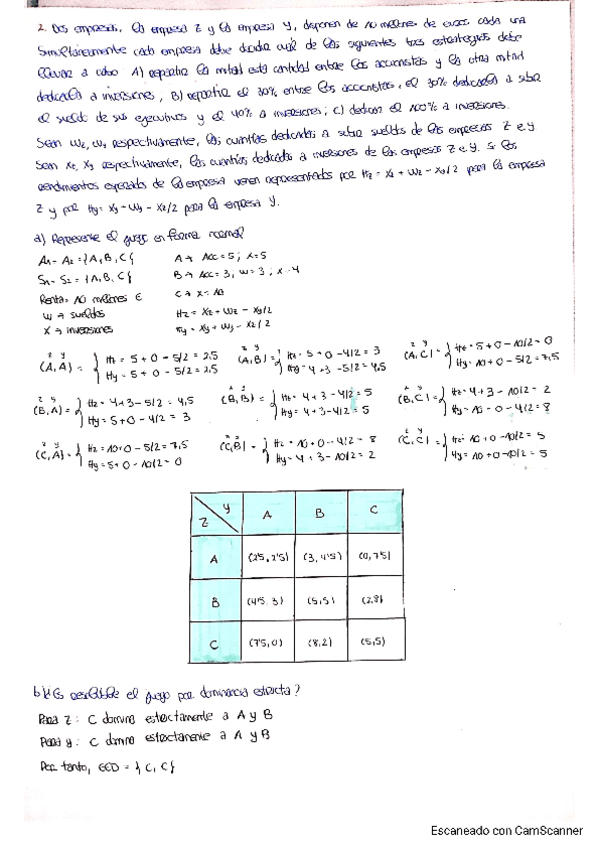 2. Dos empresas, la empresa Z y la empresa Y, disponen de 10 millones de euros cada una
Simultáneamente cada empresa debe decidir cual de las siguientes tres estrategias debe
llevar a cabo A) repartir la mitad esta cantidad entre los accionistas y la otra mitad
dedicarla a inversiones; B) repartir el 30% entre los accionistas, el 30% dedicarlo a subir
el sueldo de sus ejecutivos y el 40% a inversiones; C) dedicar el 100% a inversiones.
Sean Wz, Wy respectivamente, las cuantías dedicadas a subir sueldos de las empresas Z e Y.
Sean Xz, Xy respectivamente, las cuantías dedicadas a inversiones de las empresas Z e Y. Si los
rendimientos esperados de la empresa vienen representados por Hz = Xz + Wz - Xy/2 para la empresa
Z y por Hy = Xy + Wy - Xz/2 para la empresa Y.
a) Represente el juego en forma normal
A1 - A2 = {A, B, C} A → Acc = 5; X = 5
S1 - S2 = {A, B, C} B → Acc = 3; W = 3; X = 4
Renta: 10 millones € C → X = 10
W → sueldos Hz = Xz + Wz - Xy/2
X → inversiones Hy = Xy + Wy - Xz/2
(A, A) = { Hz = 5 + 0 - 5/2 = 2,5 (A, B) = { Hz = 5 + 0 - 4/2 = 3 (A, C) = { Hz = 5 + 0 - 10/2 = 0
Hy = 5 + 0 - 5/2 = 2,5 Hy = 4 + 3 - 5/2 = 4,5 Hy = 10 + 0 - 5/2 = 7,5
(B, A) = { Hz = 4 + 3 - 5/2 = 4,5 (B, B) = { Hz = 4 + 3 - 4/2 = 5 (B, C) = { Hz = 4 + 3 - 10/2 = 2
Hy = 5 + 0 - 4/2 = 3 Hy = 4 + 3 - 4/2 = 5 Hy = 10 - 0 - 4/2 = 8
(C, A) = { Hz = 10 + 0 - 5/2 = 7,5 (C, B) = { Hz = 10 + 0 - 4/2 = 8 (C, C) = { Hz = 10 + 0 - 10/2 = 5
Hy = 5 + 0 - 10/2 = 0 Hy = 4 + 3 - 10/2 = 2 Hy = 10 + 0 - 10/2 = 5
Z Y A B C
A (2'5, 2'5) (3, 4'5) (0, 7'5)
B (4'5, 3) (5, 5) (2, 8)
C (7'5, 0) (8, 2) (5, 5)
b) ¿Es resoluble el juego por dominancia estricta?
Para Z: C domina estrictamente a A y B
Para Y: C domina estrictamente a A y B
Por tanto, EED = {C, C}
Escaneado con CamScanner